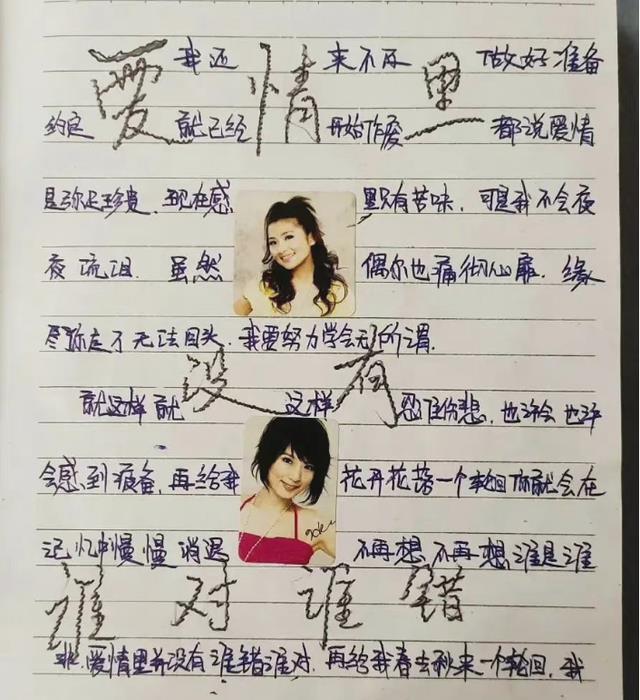 愛情里
我还 来不及 做好准备
约定 就已经 开始作废 都说爱情
是弥足珍贵，现在感 里只有苦味，可是我不会夜
夜流泪 虽然 偶尔也痛彻心扉，缘
尽你走了无法回头，我要努力学会无所谓.
没有
就这样就 这样 忍住伤悲，也许会 也许
会感到疲惫，再给我 花开花落一个轮回你就会在
记忆中慢慢消退 不再想 不再想 谁是谁
谁对谁错
非.爱情里并没有谁错谁对，再给我春去秋来一个轮回，我